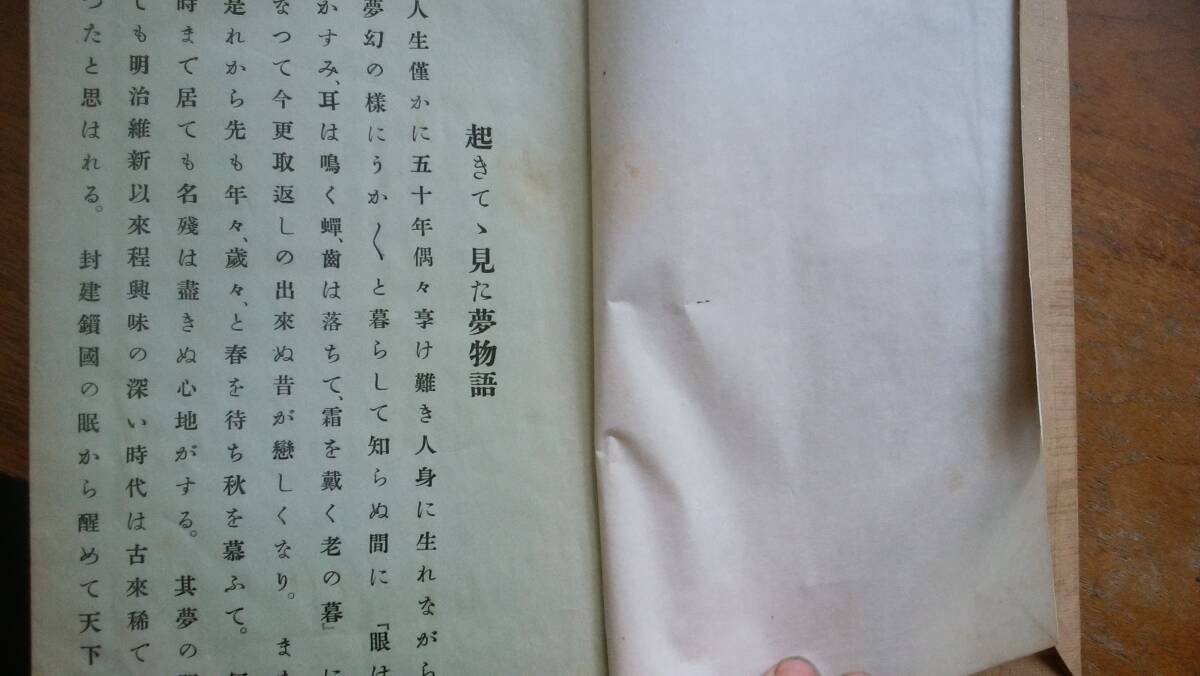 起きてゝ見た夢物語
人生僅かに五十年偶々享け難き人身に生れながら
夢幻の樣にうか〳〵と暮らして知らぬ間に「眼は
かすみ、耳は鳴く蟬、齒は落ちて、霜を戴く老の暮」に
なつて今更取返しの出來ぬ昔が戀しくなり。ま
是れから先も年々、歲々、と春を待ち秋を慕ふて。
時まで居ても名殘は盡きぬ心地がする。其夢の
ても明治維新以來程興味の深い時代は古來稀で
つたと思はれる。封建鎖國の眠から醒めて天下